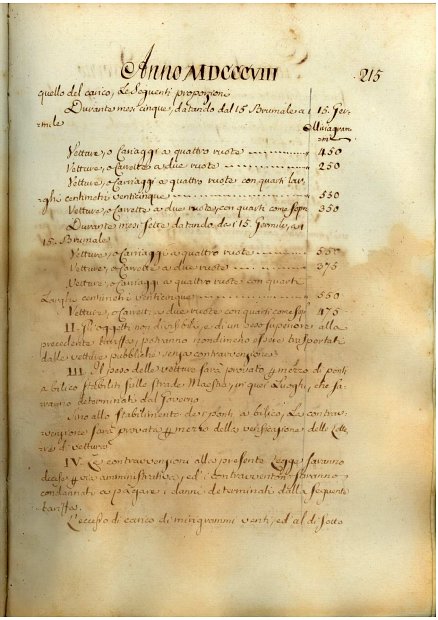 Anno MDCCCVIII 215
quello del carico, Le Seguenti proporzioni
Durante mesi cinque, datando dal 15 Brumale a 15. Ger-
mile
Miriagram
Vetture, o Cariaggi a quattro ruote 450
Vetture, o Carrette a due ruote 250
Vetture, o Cariaggi a quattro ruote con quarti lar-
ghi centimetri venticinque 550
Vetture, o Carrette a due ruote, con quarti come sopra 350
Durante mesi Sette datando da i 15. Germile, ai
15. Brumale
Vetture, o Cariaggi a quattro ruote
Vetture, o Carrette a due ruote 375
Vetture, o Cariaggi a quattro ruote con quarti
Larghi centimetri venticinque 550
Vetture, o Carrett. a due ruote con quarti come sop. 475
II. Gl'oggetti non divisibili, e di un peso superiore alla
precedente tariffa, potranno esser trasportati
dalle vetture pubbliche senza contravenzione
III. Il peso delle vetture sarà provato p mezzo di ponti
a bilico stabiliti sulle strade Maestre, in quei Luoghi, che sa-
ranno determinati dal Governo
Sino allo stabilimento de i ponti a bilico, La contrav-
venzione sarà provata p mezzo della verificazione delle Lette-
re di vettura
IV. Le contravvenzioni alla presente Legge saranno
decise p via amministrativa, ed i contravventori saranno
condannati a pagare i danni determinati dalla Seguente
tariffa
L'eccesso di carico di mirigrammi venti, ed al di Sotto